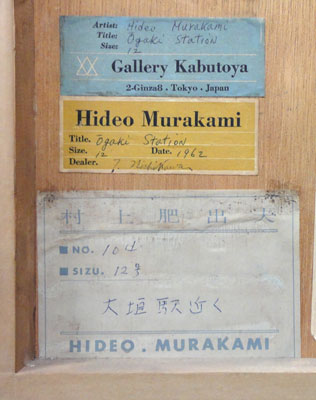 Artist: Hideo Murakami
Title: Ogaki Station
Size: 12
Gallery Kabutoya
2-Ginza8 . Tokyo . Japan
Hideo Murakami
Title. Ōgaki Station
Size. 12 Date. 1962
Dealer.
村上肥出夫
■ NO. 104
■ SIZU. 12号
大垣駅近く
HIDEO . MURAKAMI